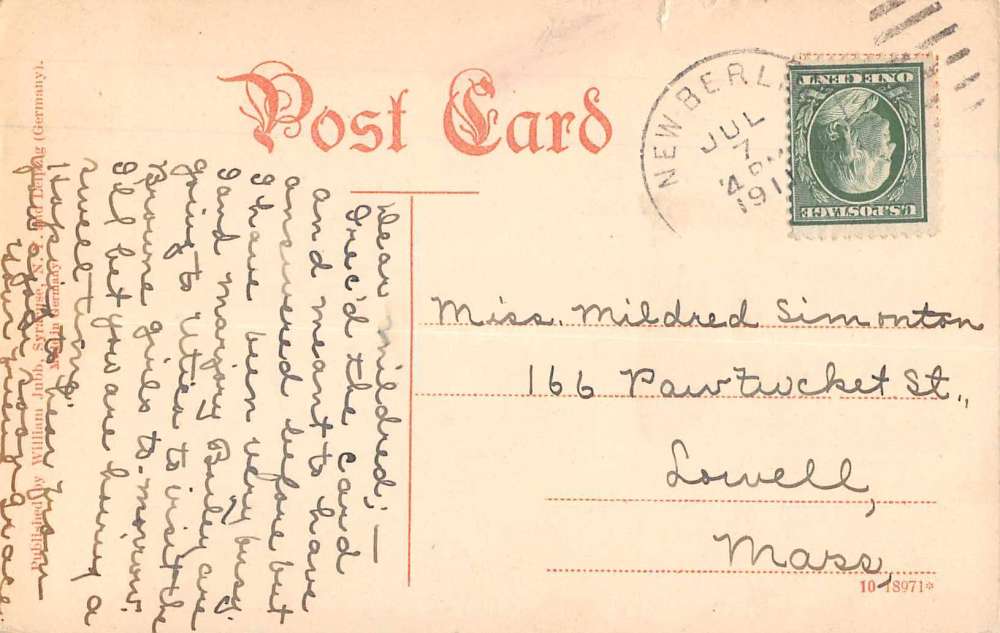 Post Card
NEW BERLI
JUL
7
4 P
1911
ONE CENT
U.S. POSTAGE
Dear Mildred;—
I rec'd the card
and meant to have
answered before but
I have been very busy.
I and Marjory Bailey are
going to Utica to visit the
Browne girls to-morrow.
I'll bet you are having a
swell time.
Hoping to hear from
you again soon
Your friend Grace.
Miss. Mildred Simonton
166 Pawtucket St.,
Lowell,
Mass,
Published by William Jubb, Syracuse, N.Y. and Leipzig (Germany).
Made in Germany
10-18971*